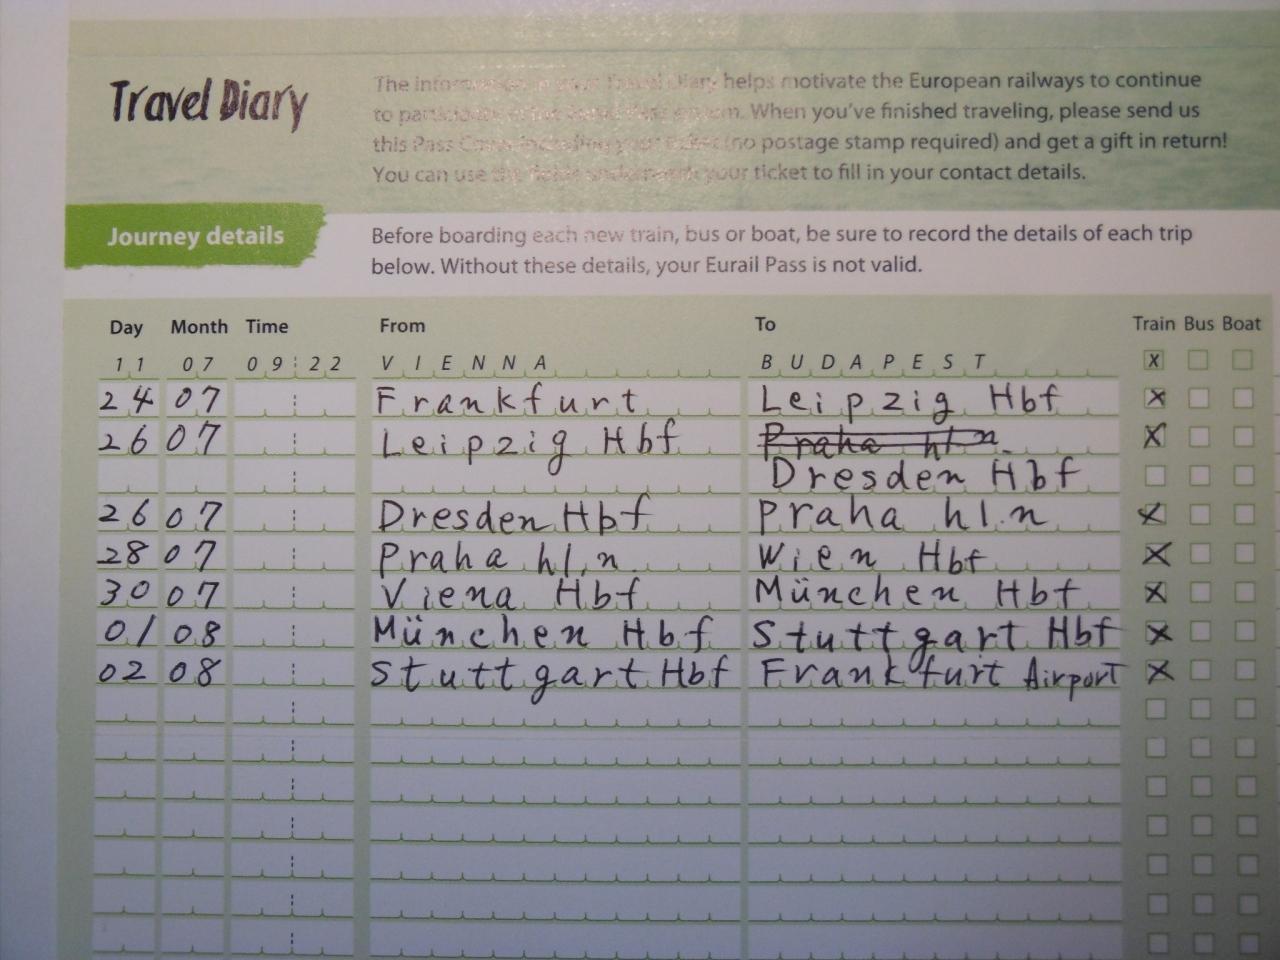 Travel Diary
The information in your Travel Diary helps motivate the European railways to continue
to participate in the Eurail Pass system. When you've finished traveling, please send us
this Pass Cover including your ticket (no postage stamp required) and get a gift in return!
You can use the fields underneath your ticket to fill in your contact details.
Journey details
Before boarding each new train, bus or boat, be sure to record the details of each trip
below. Without these details, your Eurail Pass is not valid.
Day Month Time From To Train Bus Boat
11 07 09:22 VIENNA BUDAPEST x
24 07 Frankfurt Leipzig Hbf x
26 07 Leipzig Hbf Praha hl.n. x
Dresden Hbf
26 07 Dresden Hbf Praha hl.n x
28 07 Praha hl.n. Wien Hbf x
30 07 Viena Hbf München Hbf x
01 08 München Hbf Stuttgart Hbf x
02 08 Stuttgart Hbf Frankfurt Airport x